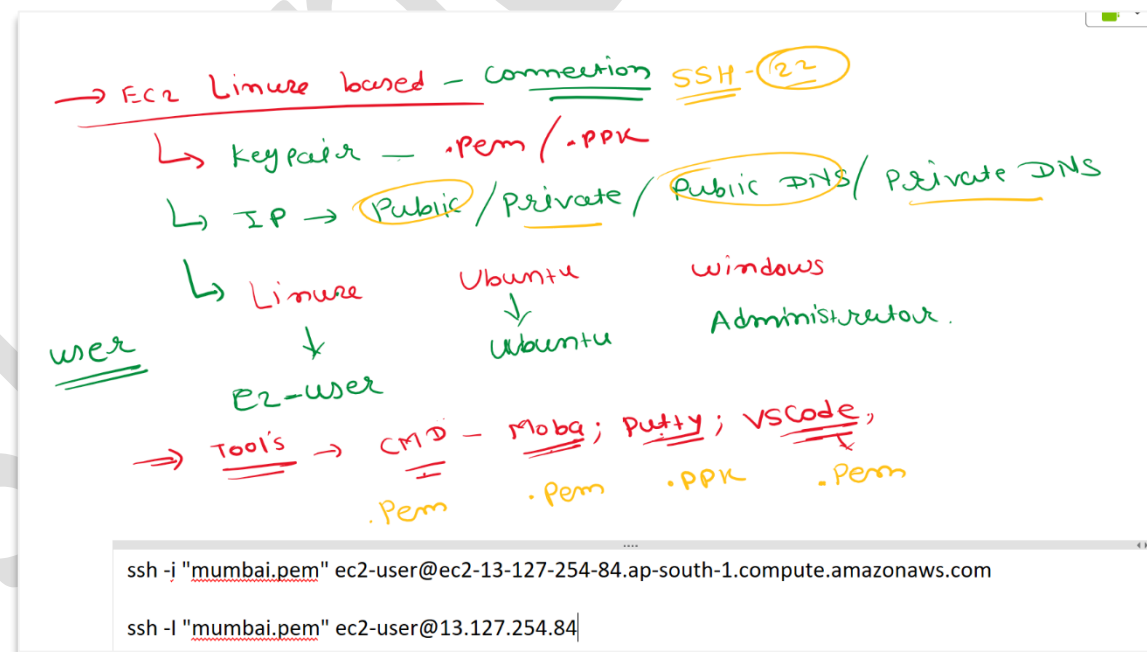 → EC2 Linux based - Connection SSH - 22
↳ Keypair - .Pem / .PPK
↳ IP → Public / Private / Public DNS / Private DNS
↳ Linux Ubuntu windows
user ↓ ↓ Administrator.
E2-user ubuntu
⇒ Tool's → CMD - Moba; Putty; VSCode,
.Pem .Pem .PPK .Pem
ssh -i "mumbai.pem" ec2-user@ec2-13-127-254-84.ap-south-1.compute.amazonaws.com
ssh -I "mumbai.pem" ec2-user@13.127.254.84